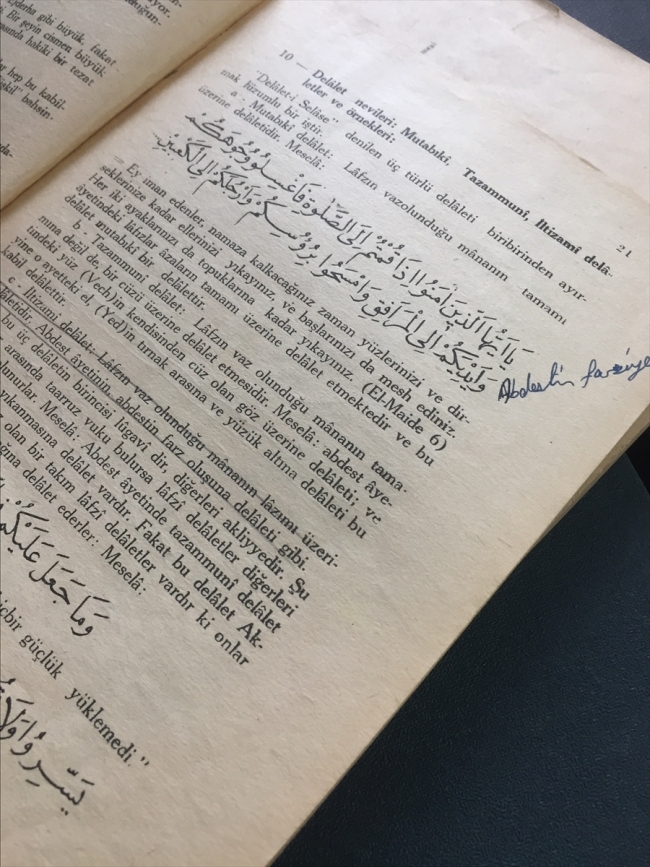 ejderha gibi büyük, fakat
Bir şeyin cismen büyük
hakiki bir tezat
hep bu kabil-
bahsin-
21
10 — Delâlet nevileri; Mutabıkî, Tazammunî, İltizamî delâ-
letler ve örnekleri:
"Delâlet-i Selâse" denilen üç türlü delâleti biribirinden ayır-
mak lüzumlu bir iştir.
a - Mutabıkî delâlet: Lâfzın vazolunduğu mânanın tamamı
üzerine delâletidir. Meselâ:
يَا اَيُّهَا الَّذِينَ اٰمَنُوا اِذَا قُمْتُمْ اِلَى الصَّلٰوةِ فَاغْسِلُوا وُجُوهَكُمْ
وَاَيْدِيَكُمْ اِلَى الْمَرَافِقِ وَامْسَحُوا بِرُؤُسِكُمْ وَاَرْجُلَكُمْ اِلَى الْكَعْبَيْنِ
= Ey iman edenler, namaza kalkacağınız zaman yüzlerinizi ve dir-
seklerinize kadar ellerinizi yıkayınız, ve başlarınızı da mesh ediniz.
Her iki ayaklarınızı da topuklarına kadar yıkayınız. (El-Maide 6)
âyetindeki lâfızlar âzaların tamamı üzerine delâlet etmektedir ve bu
delâlet mutabıkî bir delâlettir.
b - Tazammunî delâlet: Lâfzın vaz olunduğu mânanın tama-
mına değil de, bir cüzü üzerine delâlet etmesidir. Meselâ: abdest âye-
tindeki yüz (Vech)in kendisinden cüz olan göz üzerine delâleti; ve
yine o ayetteki el, (Yed)in tırnak arasına ve yüzük altına delâleti bu
kabil delâlettir.
c - İltizamî delâlet: Lâfzın vaz olunduğu mânanın lâzımı üzeri-
delâletidir. Abdest âyetinin abdestin farz oluşuna delâleti gibi.
bu üç delâletin birincisi lûgavî dir, diğerleri akliyyedir. Şu
arasında taaruz vuku bulursa lâfzî delâletler diğerleri
Meselâ: Abdest âyetinde tazammunî delâlet
yıkanmasına delâlet vardır. Fakat bu delâlet Ak-
olan bir takım lâfzî delâletler vardır ki onlar
delâlet ederler: Meselâ:
وَمَا جَعَلَ عَلَيْكُمْ
güçlük yüklemedi."
يَسِّرُوا وَلَا
Abdestin